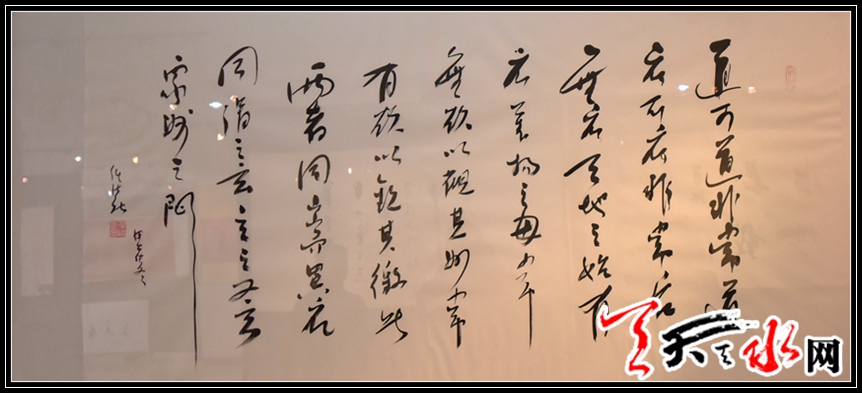 道可道非常道
名可名非常名
無名天地之始有
名萬物之母故常
無欲以觀其妙常
有欲以觀其徼此
兩者同出而異名
同謂之玄玄之又玄
眾妙之門
天天天水网